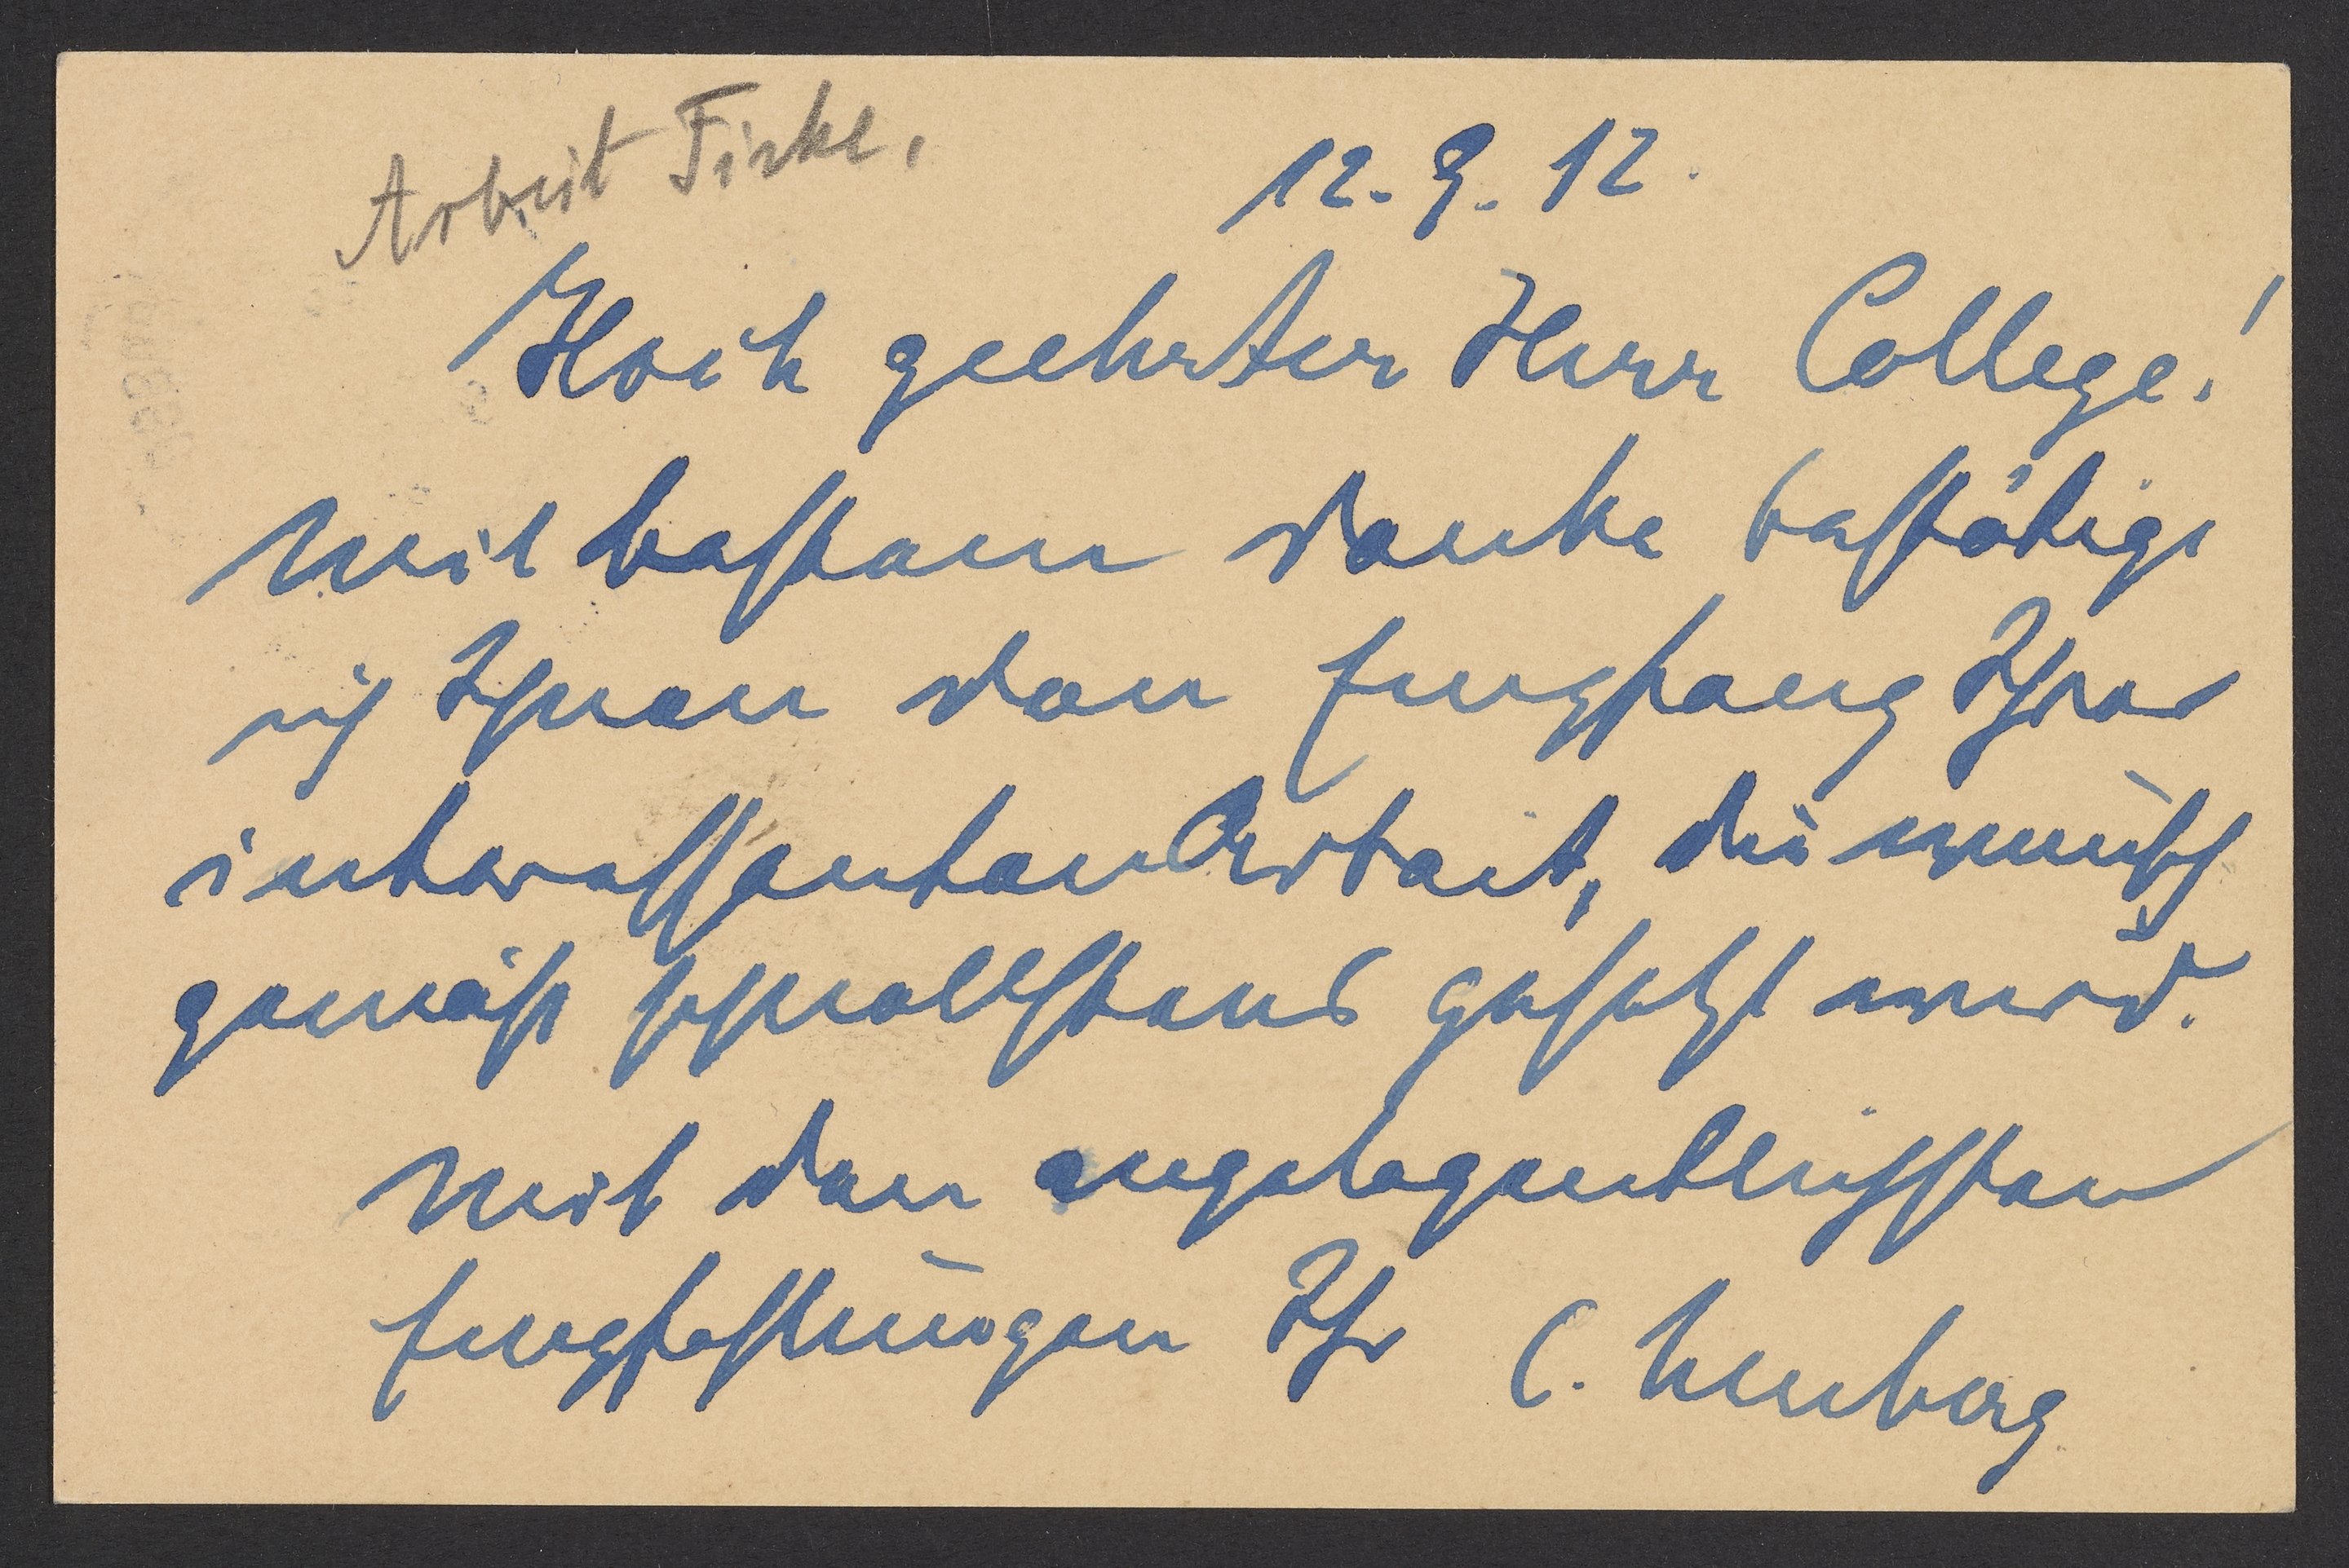 Arbeit Fiske.
12. 9. 12.
Hoch geehrter Herr College!
Mit bestem Danke bestätige
ich Ihnen den Empfang Ihrer
interessanten Arbeit, die wunsch
gemäß schnellstens gesetzt wird.
Mit den angelegentlichsten
Empfehlungen Ihr C. Neuberg